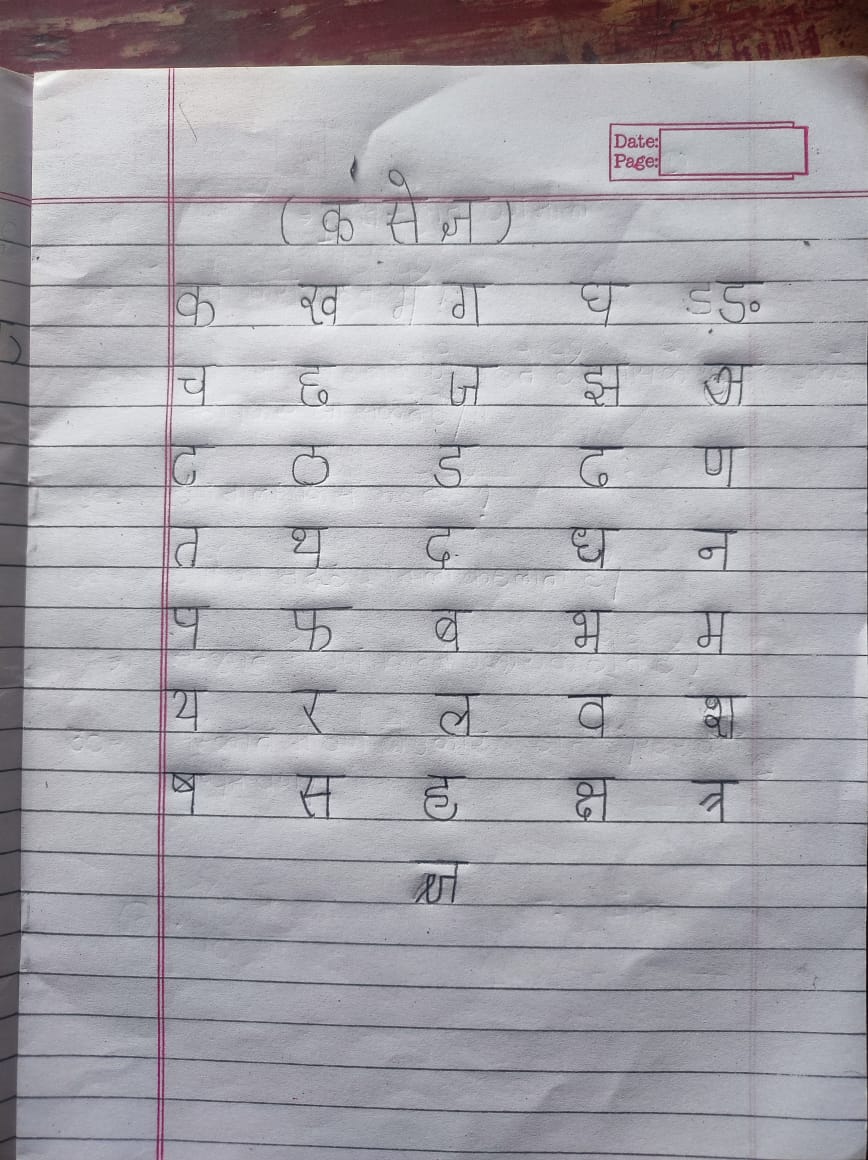 Date:
Page:
( क से ज्ञ )
क ख ग घ ङ
च छ ज झ ञ
ट ठ ड ढ ण
त थ द ध न
प फ ब भ म
य र ल व श
ष स ह क्ष त्र
ज्ञ